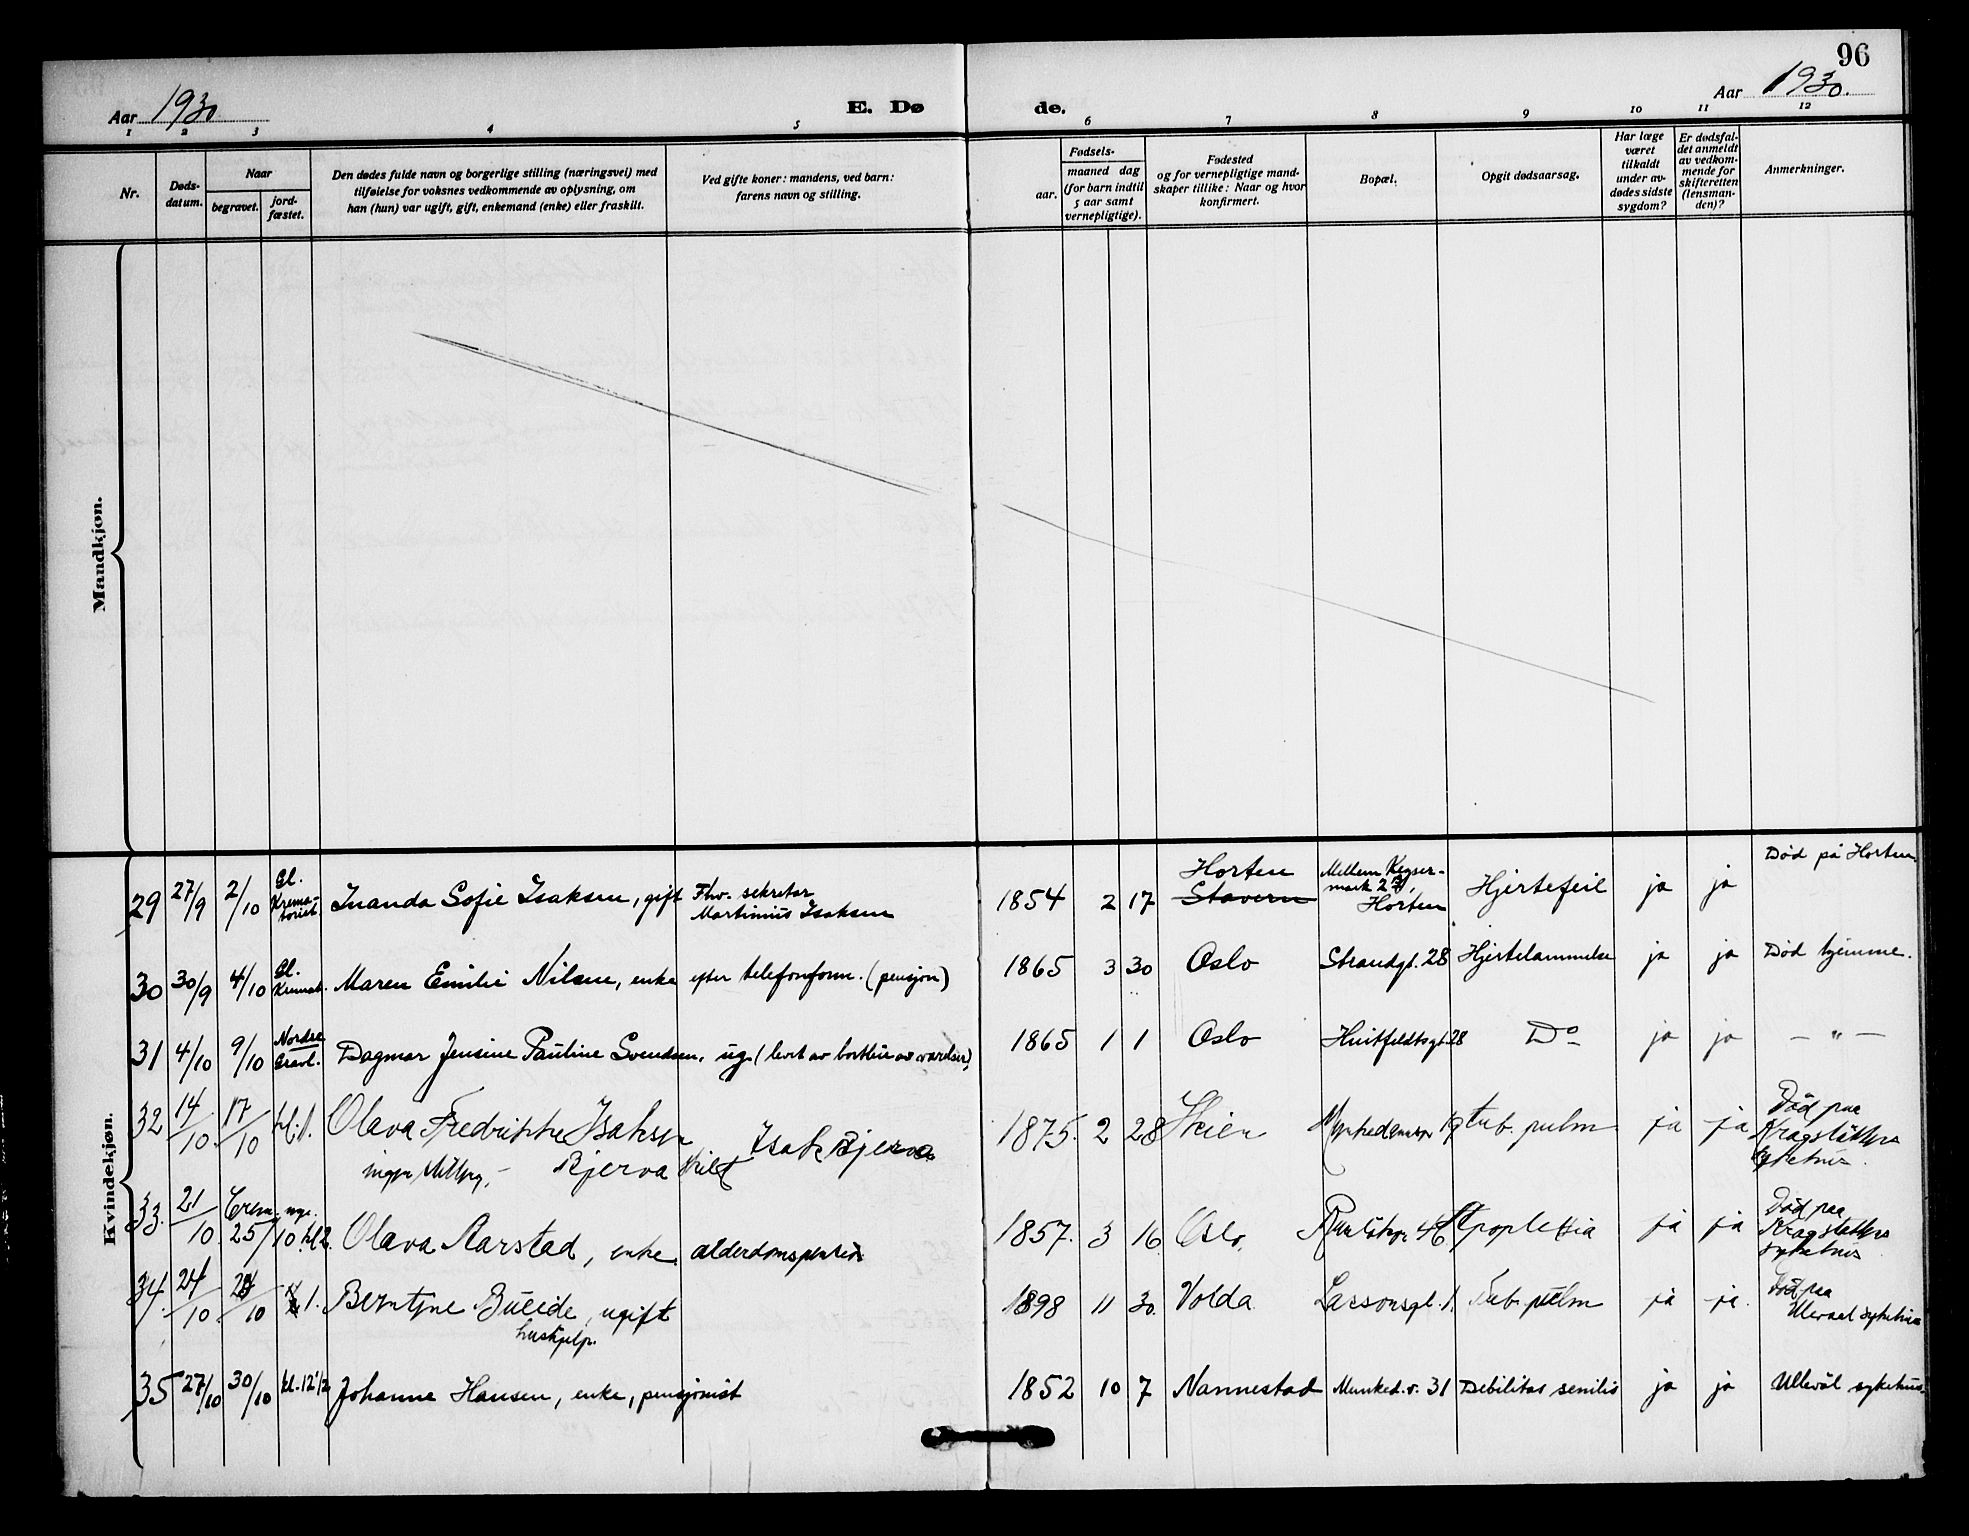 96
Aar 1930
E. Dø
de.
Aar 1930.
1 2 3 4 5 6 7 8 9 10 11 12
Nr.
Døds-
datum.
Naar
begravet.
jord-
fæstet.
Den dødes fulde navn og borgerlige stilling (næringsvei) med
tilføielse for voksnes vedkommende av oplysning, om
han (hun) var ugift, gift, enkemand (enke) eller fraskilt.
Ved gifte koner: mandens, ved barn:
farens navn og stilling.
Fødsels-
aar.
maaned dag
(for barn indtil
5 aar samt
vernepligtige).
Fødested
og for vernepligtige mand-
skaper tillike: Naar og hvor
konfirmert.
Bopæl.
Opgit dødsaarsag.
Har læge
været
tilkaldt
under av-
dødes sidste
sygdom?
Er dødsfal-
det anmeldt
av vedkom-
mende for
skifteretten
(lensman-
den)?
Anmerkninger.
Mandkjøn.
Kvindekjøn.
29 27/9 2/10 Gl. Krema-toriet Inanda Sofie Isaksen, gift Fhv. sekretær Martinius Isaksen 1854 2 17 Horten Stavern Mellem Keyser-mark 27, Horten Hjertefeil ja ja Død på Horten.
30 30/9 4/10 Gl. Kremat. Maren Emilie Nilsen, enke efter telefonform. (pensjon) 1865 3 30 Oslo Strandgt. 28 Hjertelammelse ja ja Død hjemme.
31 4/10 9/10 Nordre Gravl. Dagmar Jensine Pauline Svendsen, ug. (levet av bortleie av værelser) 1865 1 1 Oslo Huitfeldtsgt. 28 Do ja ja — " —
32 14/10 17/10 kl. 1. Olava Fredrikke Isaksen Bjerva Isak Bjerva 1875. 2 28 Skien 19 tub. pulm ja ja Død paa Kragstøttens sykehus.
33. 21/10 Crem. nye. 25/10 kl 2. Olava Aarstad, enke alderdomspension 1857. 3 16 Oslo. 46 Apoplexia ja ja Død paa Kragstøttens sykehus
34. 24/10 10 1. Berntine Bueide, ugift hushjelp. 1898 11 30. Volda Lassonsgt. 1. Tub. pulm ja ja. Død paa Ullevaal sykehus
35 27/10 30/10 kl. 12 1/2 Johanne Hansen, enke, pensjonist 1852 10 7 Nannestad Munked. v. 31 Debilitas senilis ja ja Ullevål sykehus.